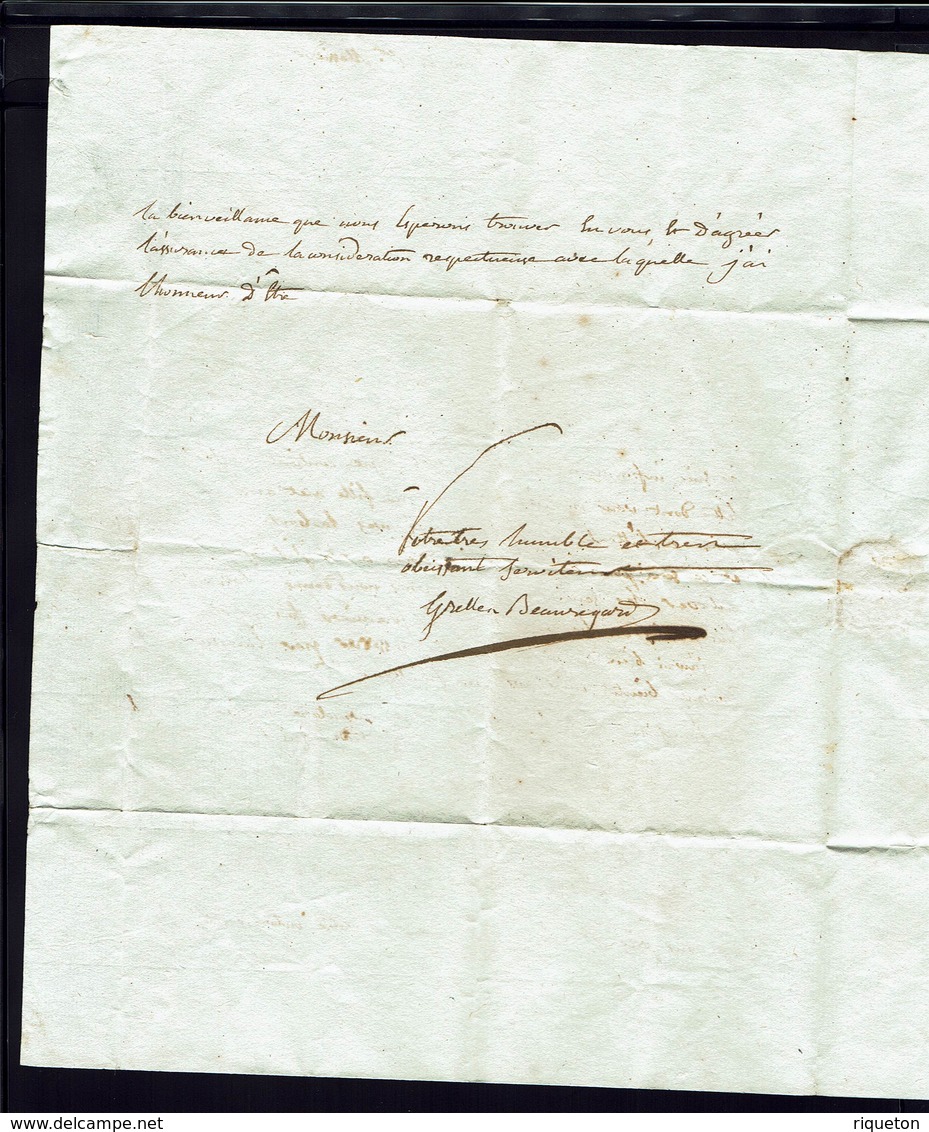 la bienveillame que nous Esperons trouver En vous, Et D'agréer
l'assurance de la consideration respectueuse avec laquelle j'ai
l'honneur D'Etre
Monsieur
Votre tres humble et tres
obeissant serviteur
Beauregard
delcampe.net
riqueton